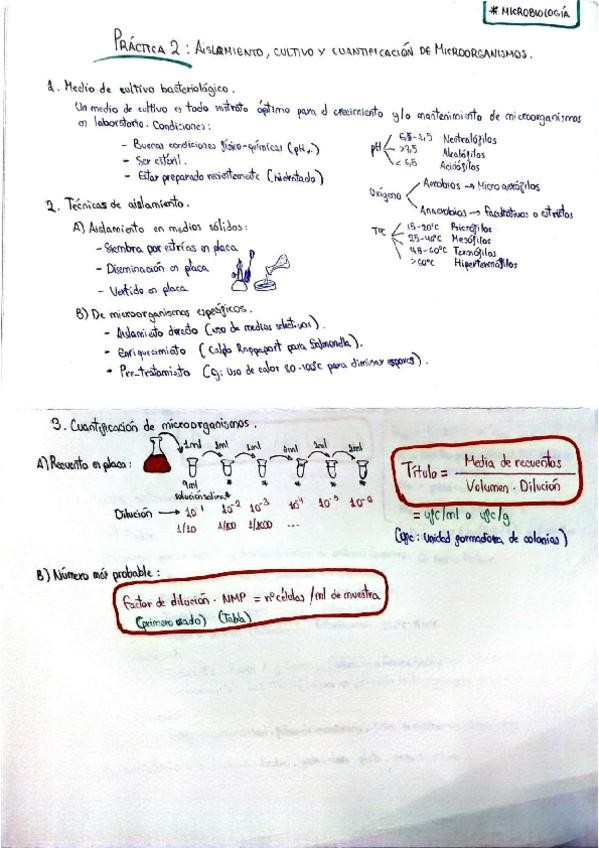 * MICROBIOLOGÍA
PRÁCTICA 2: AISLAMIENTO, CULTIVO Y CUANTIFICACIÓN DE MICROORGANISMOS.
1. Medio de cultivo bacteriológico.
Un medio de cultivo es todo sustrato óptimo para el crecimiento y/o mantenimiento de microorganismos
en laboratorio. Condiciones:
- Buenas condiciones físico-químicas (pH..)
- Ser estéril.
- Estar preparado recientemente (hidratado)
pH
6,5-7,5 Neutrófilos
>7,5 Alcalófilos
< 6,5 Acidófilos
Oxígeno
Aerobios → Microaerófilos
Anaerobios → Facultativos o estrictos
TªC
15-20ºC Psicrófilos
25-40ºC Mesófilos
45-60ºC Termófilos
>60ºC Hipertermófilos
2. Técnicas de aislamiento.
A) Aislamiento en medios sólidos:
- Siembra por estrías en placa
- Diseminación en placa
- Vertido en placa
B) De microorganismos específicos.
• Aislamiento directo (uso de medios selectivos).
• Enriquecimiento (Caldo Rappaport para Salmonella).
• Pre-tratamiento (Ej: Uso de calor 80-100ºC para eliminar esporas).
3. Cuantificación de microorganismos.
A) Recuento en placa:
1ml 1ml 1ml 1ml 1ml 1ml
9ml
solución salina
* * * * *
Dilución → 10⁻¹ 10⁻² 10⁻³ 10⁻⁴ 10⁻⁵ 10⁻⁶
1/10 1/100 1/1000 ...
Título = Media de recuentos / Volumen · Dilución
= ufc/ml o ufc/g
(ufc: Unidad formadora de colonias)
B) Número más probable:
Factor de dilución · NMP = nº células / ml de muestra
(primero usado) (Tabla)